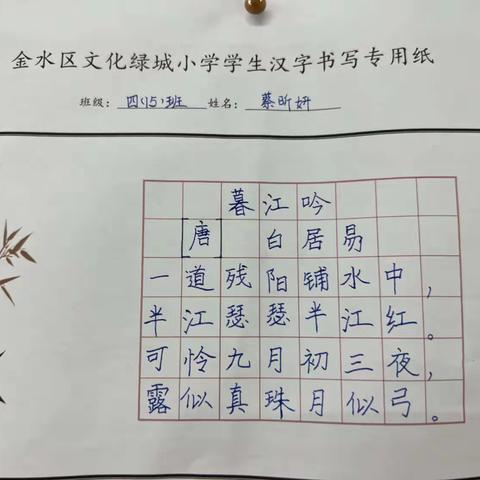 金水区文化绿城小学学生汉字书写专用纸
班级：四（5）班 姓名：蔡昕妍
暮江吟
[唐] 白居易
一道残阳铺水中，
半江瑟瑟半江红。
可怜九月初三夜，
露似真珠月似弓。